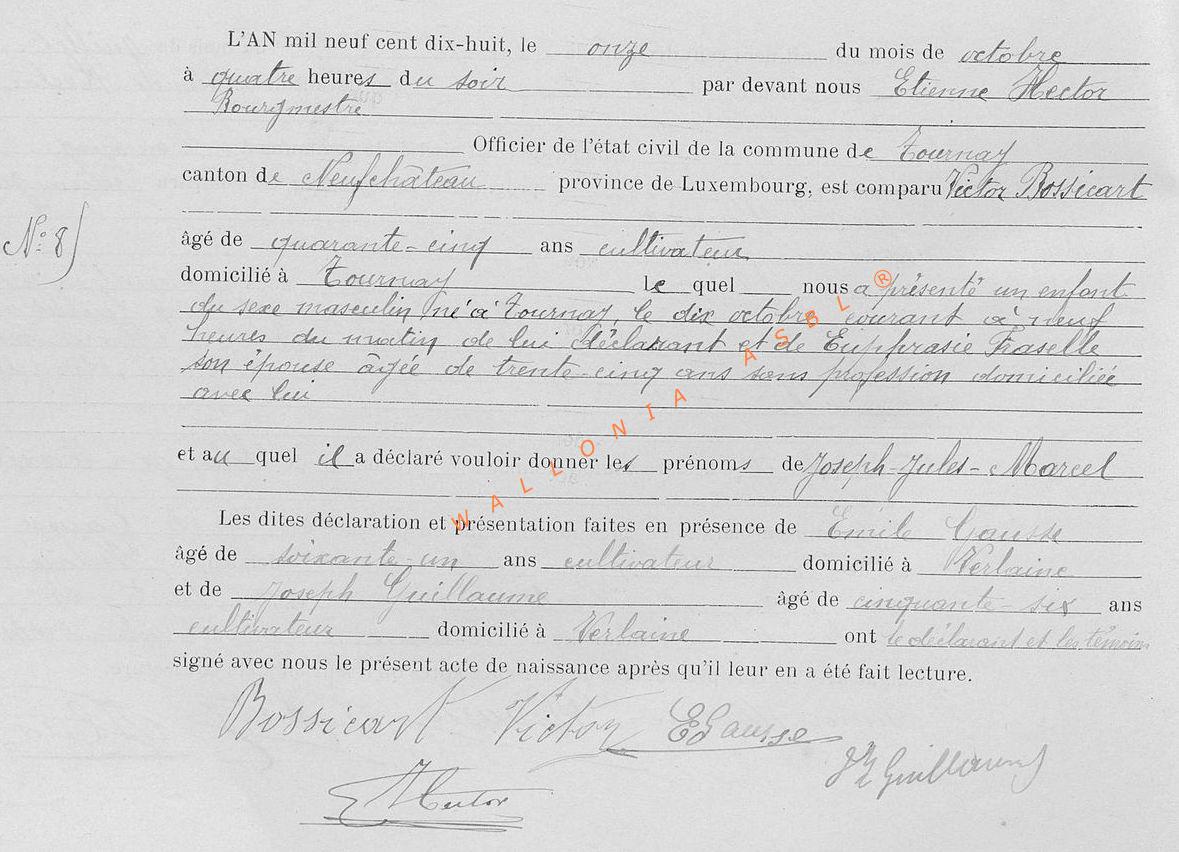 L'AN mil neuf cent dix-huit, le onze du mois de octobre
à quatre heures du soir par devant nous Etienne Hector
Bourgmestre
Officier de l'état civil de la commune de Tournay
canton de Neufchâteau province de Luxembourg, est comparu Victor Bossicart
N° 8
âgé de quarante-cinq ans cultivateur
domicilié à Tournay le quel nous a présenté un enfant
du sexe masculin, né à Tournay, le dix octobre courant à neuf
heures du matin de lui déclarant et de Euphrasie Fraselle
son épouse âgée de trente-cinq ans sans profession domiciliée
avec lui
et au quel il a déclaré vouloir donner les prénoms de Joseph-Jules-Marcel
WALLONIA ASBL ®
Les dites déclaration et présentation faites en présence de Emile Gausse
âgé de soixante-un ans cultivateur domicilié à Verlaine
et de Joseph Guillaume âgé de cinquante-six ans
cultivateur domicilié à Verlaine ont le déclarant et les témoins
signé avec nous le présent acte de naissance après qu'il leur en a été fait lecture.
Bossicart Victor EGausse
Guillaume
E Hector